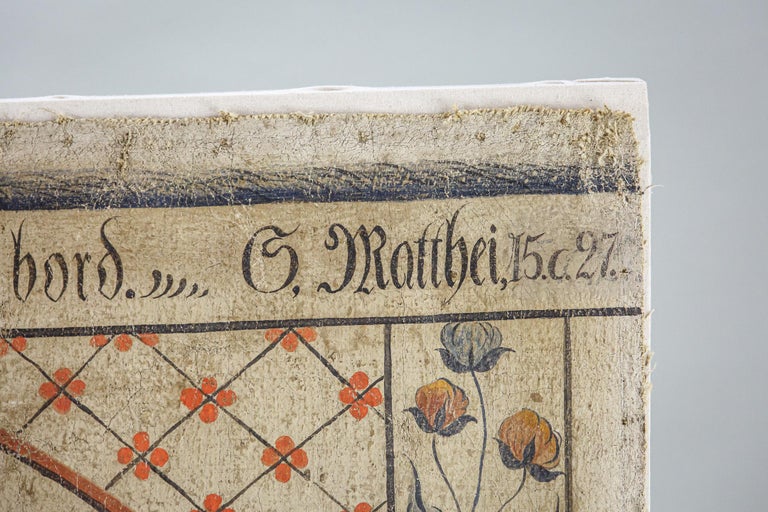 bord.,,,,, S, Matthei, 15. c. 27.